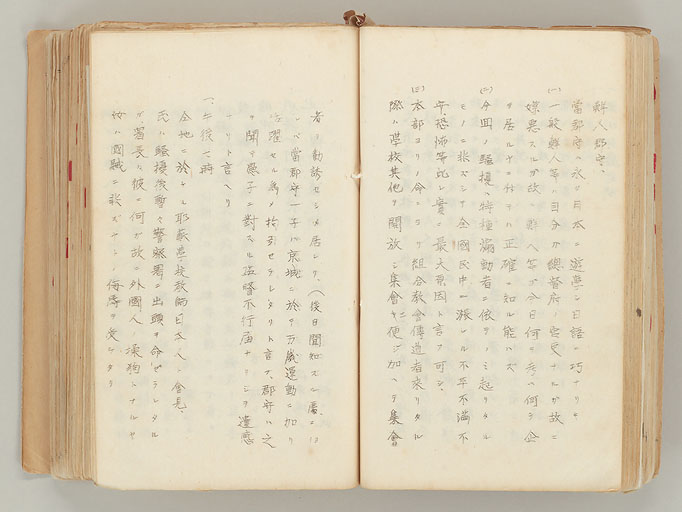 鮮人郡守、
當郡守ハ永ク日本ニ遊學シ日語ニ巧ナリキ
(一)一般鮮人等ハ自分ガ總督府ノ官吏ナルガ故ニ
嫌悪スルガ故ニ鮮人等ガ今日何ヲ考ヘ何ヲ企
テ居ルヤハ 正確ニ知ル能ハズ
(二)今回ノ騒擾ハ特種煽動者ニ依テノミ起リタル
モノニ非ズシテ全國民中ニ漲レル不平不滿不
安、恐怖等此レ實ニ最大原因ト言フ可シ、
(三)本部ヨリノ命ニヨリ組合敎會傳道者來リタル
際ハ學校其他ヲ開放シ集會ニ便ヲ加ヘテ集會
者ノ勸誘セシメ居レリ、(後日聞知スル處ニヨ
レバ當郡守ノ子ハ京城ニ於テ万歳運動ニ加リ
活躍セル為メ拘引セラレタリト言フ、郡守ハ之
ヲ聞キ愚子ニ對スル監督不行届ナリシヲ遺感
ナリト言ヘリ
一、午後一時
全地ニ於ケル耶蘇學校敎師日本人ニ會見
氏ハ騒擾後警々警察署ニ出頭ヲ命ゼラレタル
ガ署長ハ彼ニ何ガ故ニ外國人ノ 狗トナルヤ
汝ハ國賊ニ非ズヤト 侮辱ヲ受ケタリ